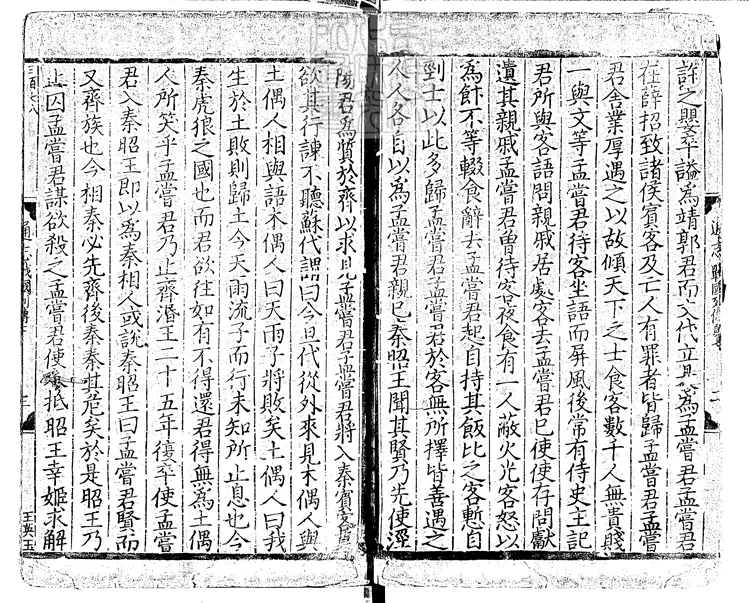 許之嬰卒謚爲靖郭君而文代立是爲孟嘗君孟嘗君
在薛招致諸侯賓客及亡人有罪者皆歸孟嘗君孟嘗
君舎業厚遇之以故傾天下之士食客數千人無貴賤
一與文等孟嘗君待客坐語而屏風後常有侍史主記
君所與客語問親戚居處客去孟嘗君已使使存問獻
遺其親戚孟嘗君曽待客夜食有一人蔽火光客怒以
爲飰不等輟食辭去孟嘗君起自持其飯比之客慙自
剄士以此多歸孟嘗君孟嘗君於客無所擇皆善遇之
人人各自以爲孟嘗君親已秦昭王聞其賢乃先使涇
通志戰國列傳
陽君爲質於齊以求見孟嘗君孟嘗君將入秦賓客
欲其行諫不聽蘇代謂曰今旦代從外來見木偶人與
土偶人相與語木偶人曰天雨子將敗矣土偶人曰我
生於土敗則歸土今天雨流子而行未知所止息也今
秦虎狼之國也而君欲往如有不得還君得無爲土偶
人所笑乎孟嘗君乃止齊湣王二十五年復卒使孟嘗
君入秦昭王即以爲秦相人或說秦昭王曰孟嘗君賢而
又齊族也今相秦必先齊後秦秦其危矣於是昭王乃
止囚孟嘗君謀欲殺之孟嘗君使人抵昭王幸姬求解
三百七八
王英玉